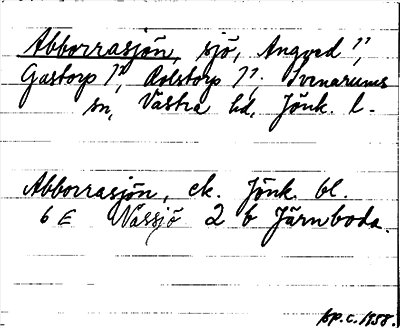 Abborrasjön, sjö, Angved 1/1,
Gastorp 1/1, Rolstorp 1/1; Svenarums
sn, Västra hd, Jönk. l.
Abborrasjön, ek. Jönk. bl.
6 E Nässjö 2 b Järnboda.
sp.c. 1958.